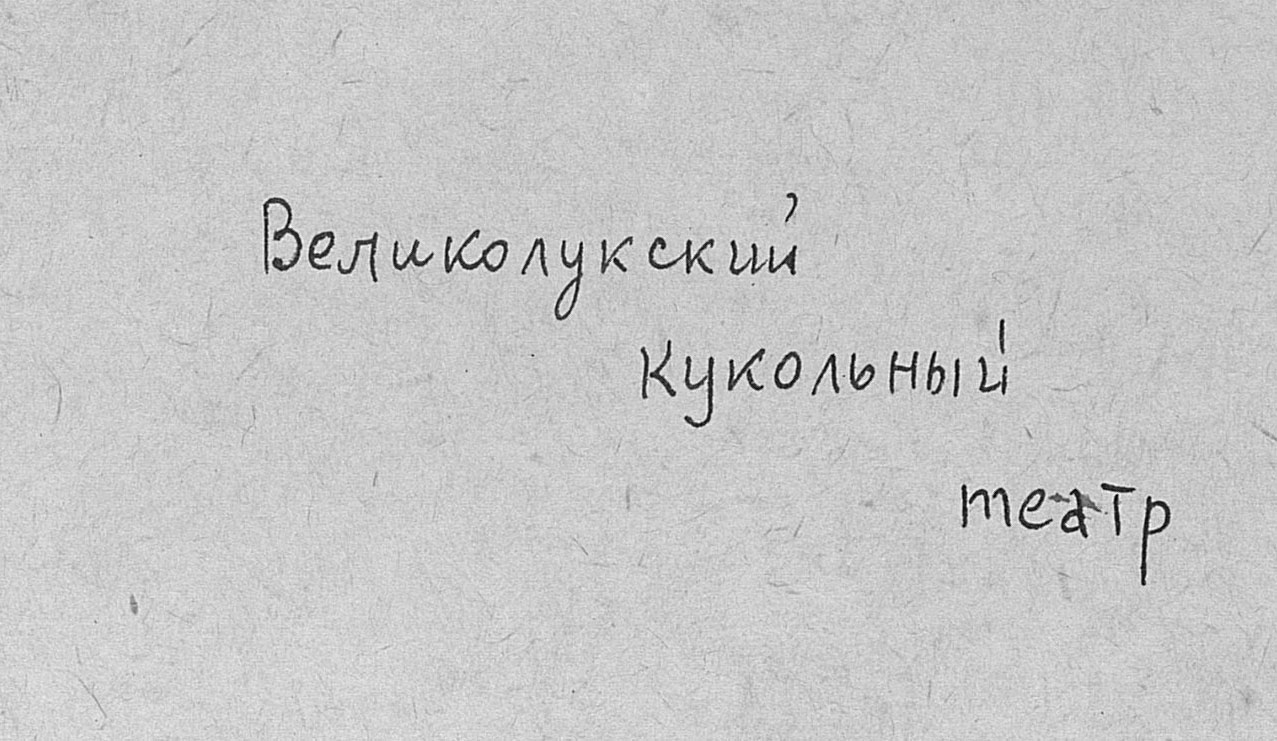 Великолукский
кукольный
театр